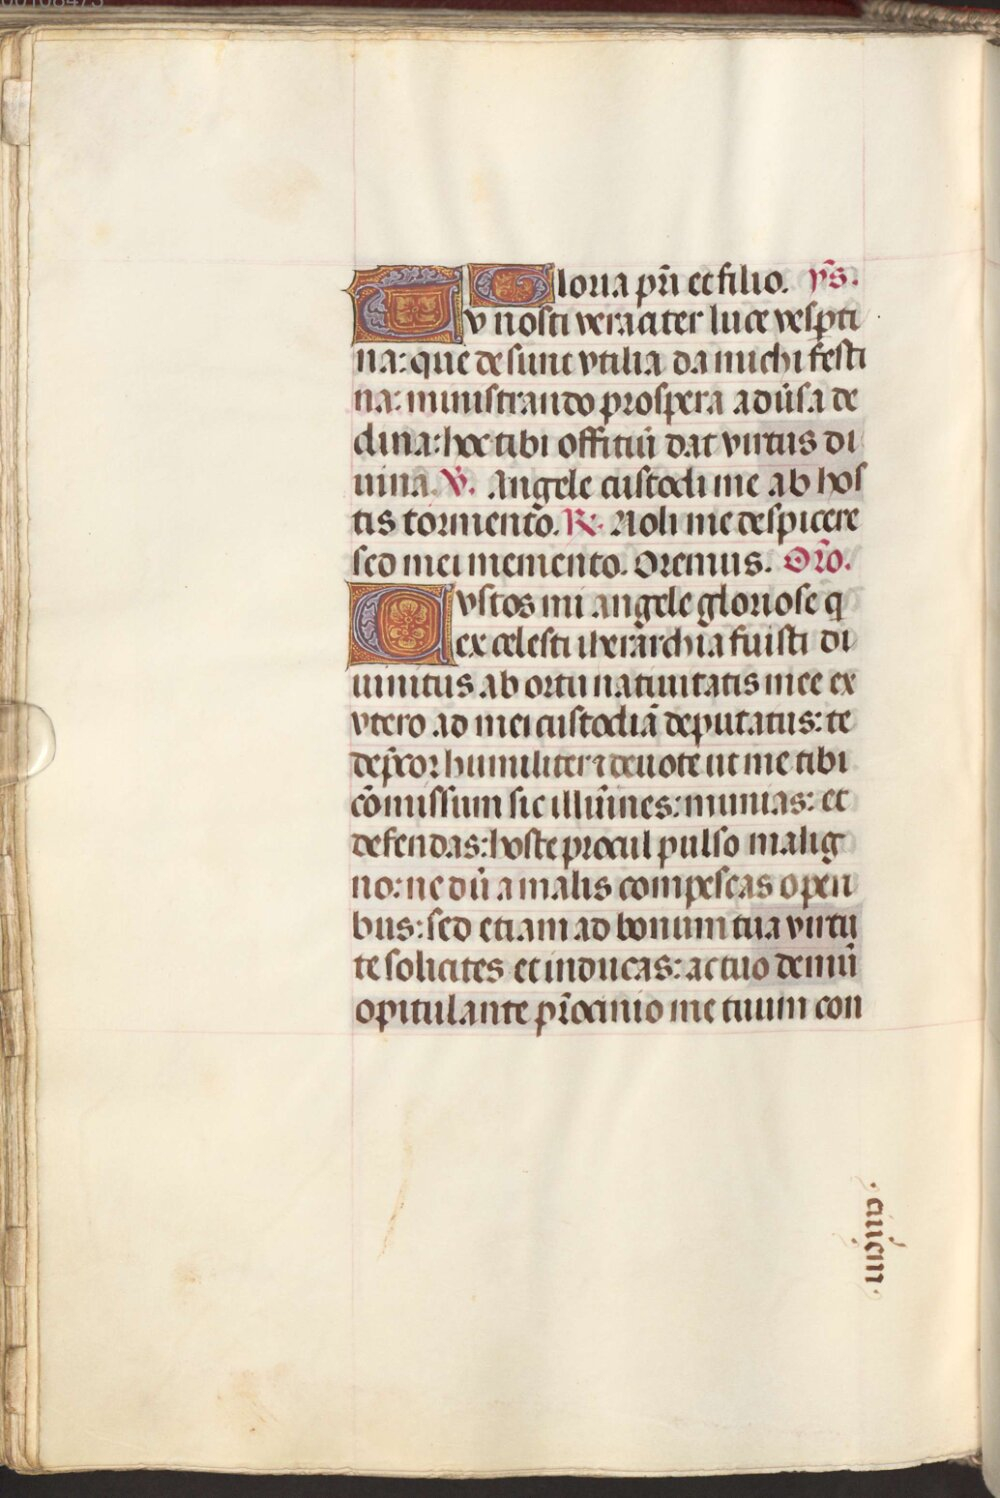 Gloria pr̃i et filio. ỹs.
Tu nosti veraciter luce vesp̱ti
na: que desunt vtilia da michi festi
na: ministrando prospera adũsa de
clina: hoc tibi offitiũ dat virtus di
uina. ℣. Angele custodi me ab hos
tis tormento. ℟. Noli me despicere
sed mei memento. Oremus. Or̃o.
Custos mi angele gloriose q̃
ex celesti iherarchia fuisti di
uinitus ab ortu natiuitatis mee ex
vtero ad mei custodiã deputatus: te
dep̃cor humiliter ⁊ deuote ut me tibi
cõmissum sic illũines: munias: et
defendas: hoste procul pulso malig
no: ne dũ a malis compescas operi
bus: sed etiam ad bonum tua virtu
te solicites et inducas: ac tuo demũ
opitulante pr̃ocinio me tuum con